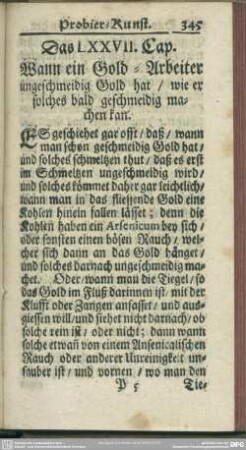 Probier-Kunst. 345
Das LXXVII. Cap.
Wann ein Gold-Arbeiter
ungeschmeidig Gold hat / wie er
solches bald geschmeidig ma-
chen kan.
ES geschiehet gar offt / daß / wann
man schon geschmeidig Gold hat /
und solches schmeltzen thut / daß es erst
im Schmeltzen ungeschmeidig wird /
und solches kömmet daher gar leichtlich /
wann man in das fliessende Gold eine
Kohlen hinein fallen lässet; denn die
Kohlen haben ein Arsenicum bey sich /
oder sonsten einen bösen Rauch / wel-
cher sich dann an das Gold hänget /
und solches darnach ungeschmeidig ma-
chet. Oder / wann mau die Tiegel / so
das Gold im Fluß darinnen ist / mit der
Klufft oder Zangen anfasset / und aus-
giessen will / und siehet nicht darnach / ob
solche rein ist / oder nicht; dann wann
solche etwan von einem Arsenicalischen
Rauch oder anderer Unreinigkeit un-
sauber ist / und vornen / wo man den
P 5 Tie-